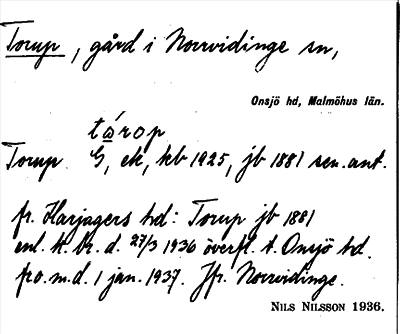 Torup, gård i Norrvidinge sn,
Onsjö hd, Malmöhus län.
tárop
Torup. G, ek, kb 1925, jb 1881 sen. ant.
fr. Harjagers hd: Torup jb 1881
enl. k. br. d. 27/3 1936 överfl. t. Onsjö hd.
fr o. m. d. 1 jan. 1937. Jfr. Norrvidinge.
NILS NILSSON 1936.